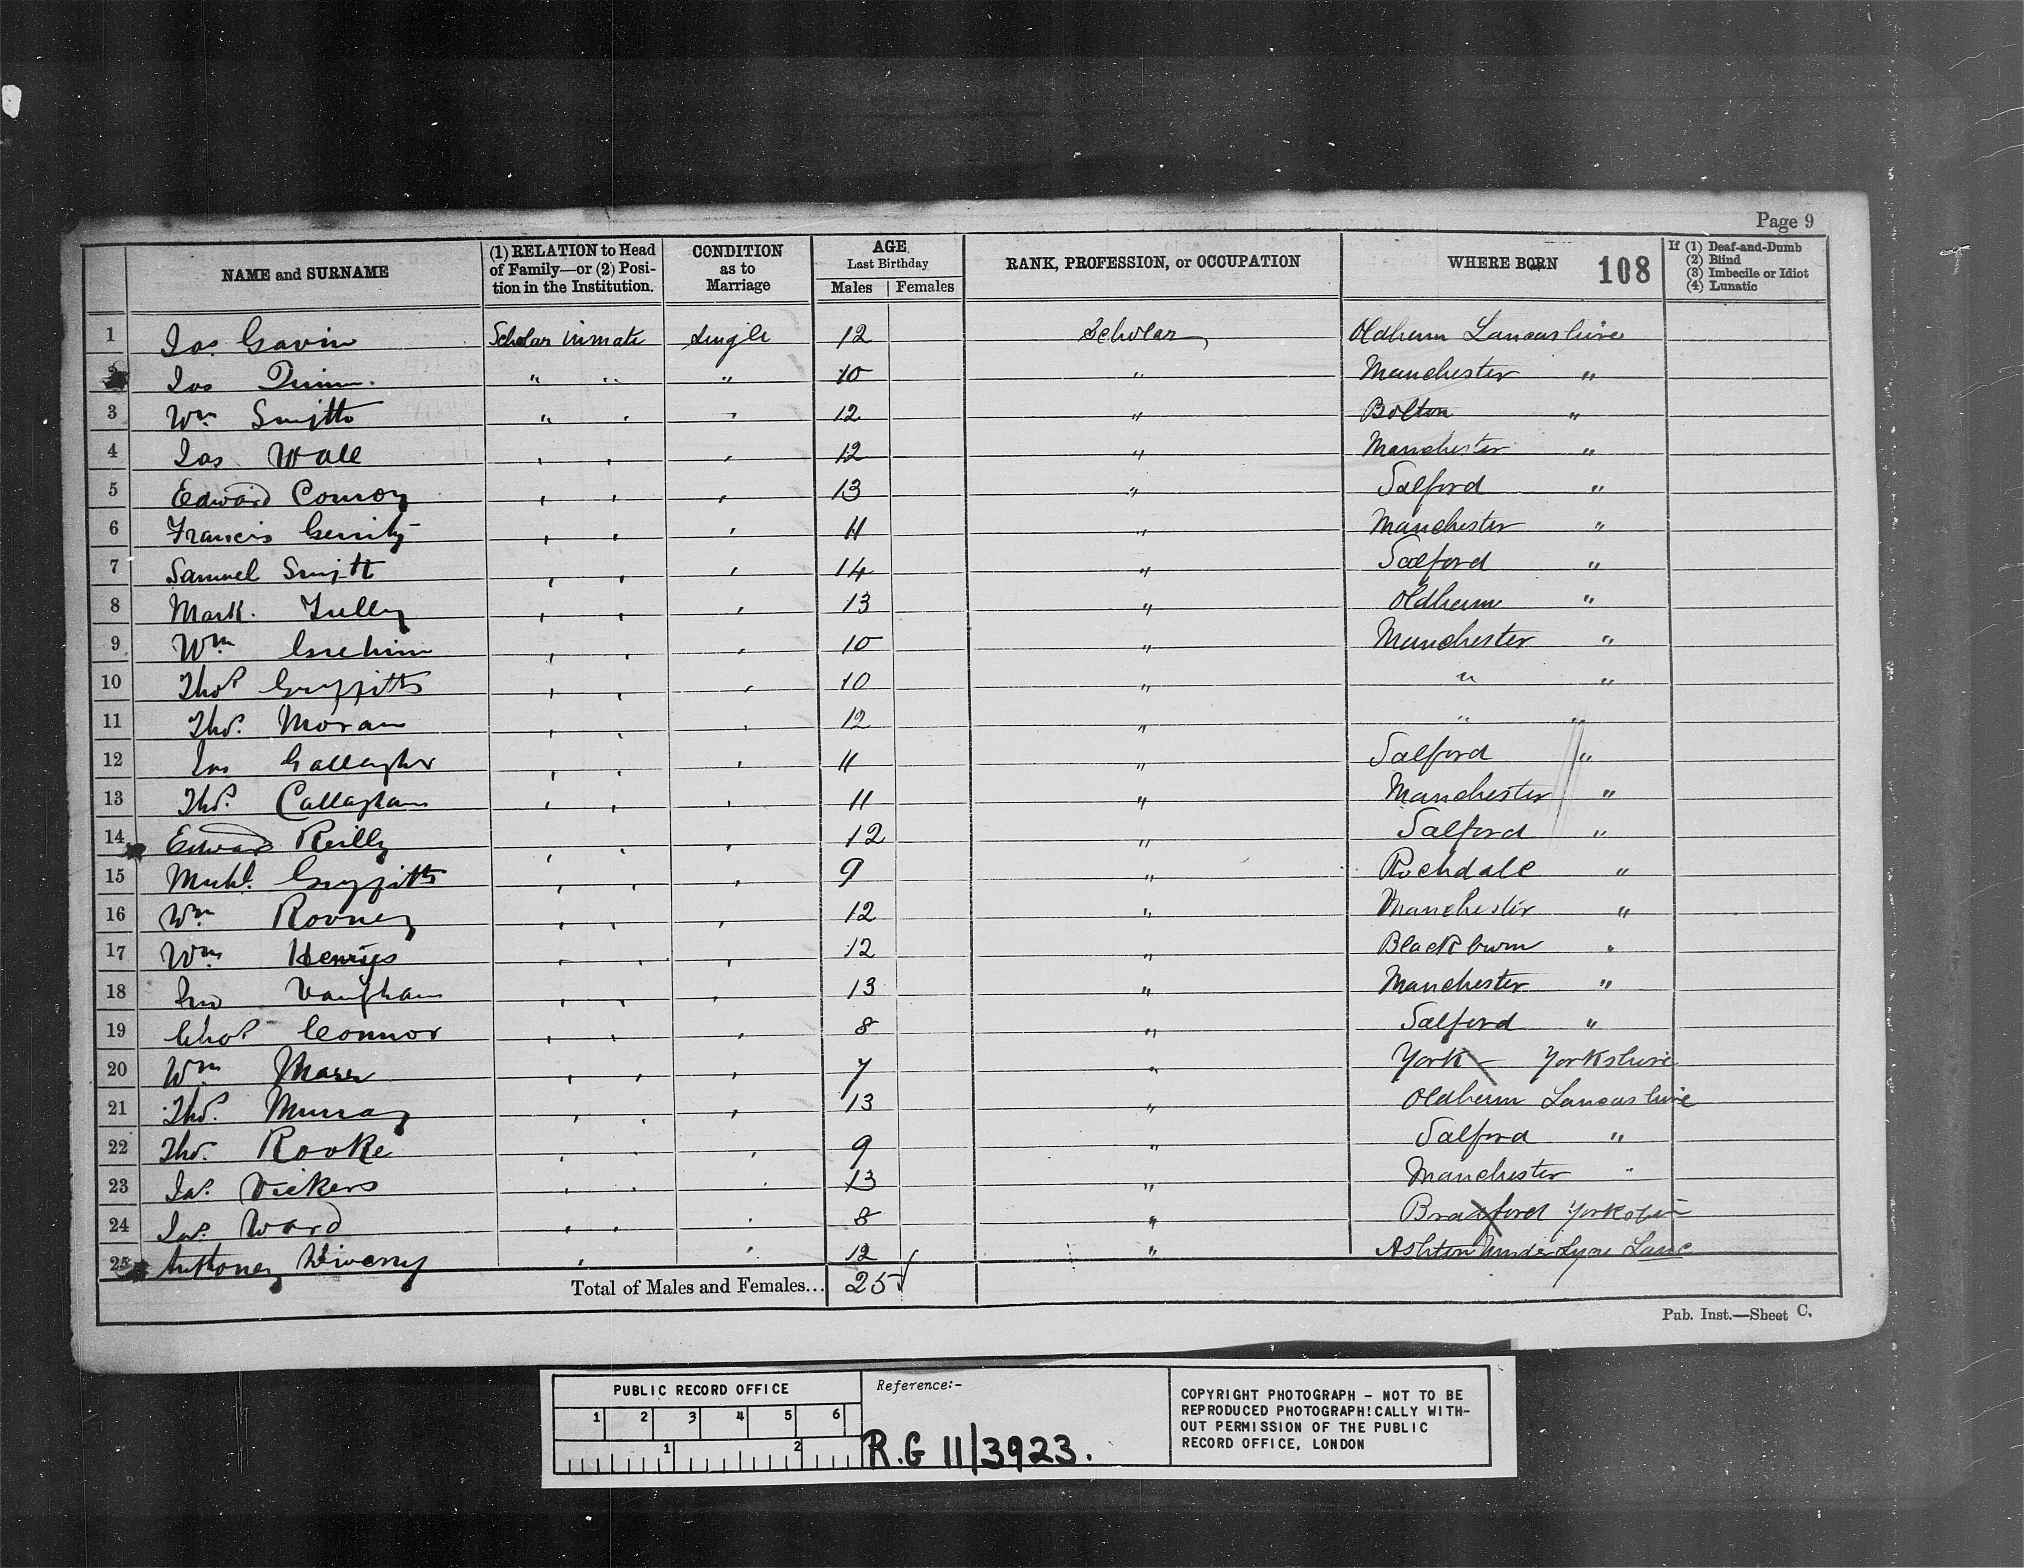 Page 9
NAME and SURNAME (1) RELATION to Head of Family—or (2) Position in the Institution. CONDITION as to Marriage AGE Last Birthday Males Females RANK, PROFESSION, or OCCUPATION WHERE BORN 108 If (1) Deaf-and-Dumb (2) Blind (3) Imbecile or Idiot (4) Lunatic
1 Jas. Gavin Scholar inmate Single 12 Scholar Oldham Lancashire
2 Jas Quinn. " " " 10 " Manchester "
3 Wm Smith " " " 12 " Bolton "
4 Jas Wall " " " 12 " Manchester "
5 Edward Conroy " " " 13 " Salford "
6 Francis Gerrity " " " 11 " Manchester "
7 Samuel Smith " " " 14 " Salford "
8 Mark. " " " 13 " Oldham "
9 Wm " " " 10 " Manchester "
10 Thos Griffiths " " " 10 " " "
11 Thos. Moran " " " 12 " " "
12 Gallagher " " " 11 " Salford "
13 Thos. Callaghan " " " 11 " Manchester "
14 Edward Reilly " " " 12 " Salford "
15 Michl. Griffiths " " " 9 " Rochdale "
16 Wm Rooney " " " 12 " Manchester "
17 Wm Henrys " " " 12 " Blackburn "
18 Jno Vaughan " " " 13 " Manchester "
19 Chas Connor " " " 8 " Salford "
20 Wm " " " 7 " York Yorkshire
21 Thos. Murray " " " 13 " Oldham Lancashire
22 Thos. Rooke " " " 9 " Salford "
23 Jas. Vickers " " " 13 " Manchester "
24 Jas. Ward " " " 8 " Bradford Yorkshire
25 Anthoney " " 12 " Ashton Under Lyne Lanc
Total of Males and Females... 25
Pub. Inst.—Sheet C.
PUBLIC RECORD OFFICE
1 2 3 4 5 6
1 2
Reference:-
R.G 11/3923.
COPYRIGHT PHOTOGRAPH - NOT TO BE
REPRODUCED PHOTOGRAPHICALLY WITH-
OUT PERMISSION OF THE PUBLIC
RECORD OFFICE, LONDON